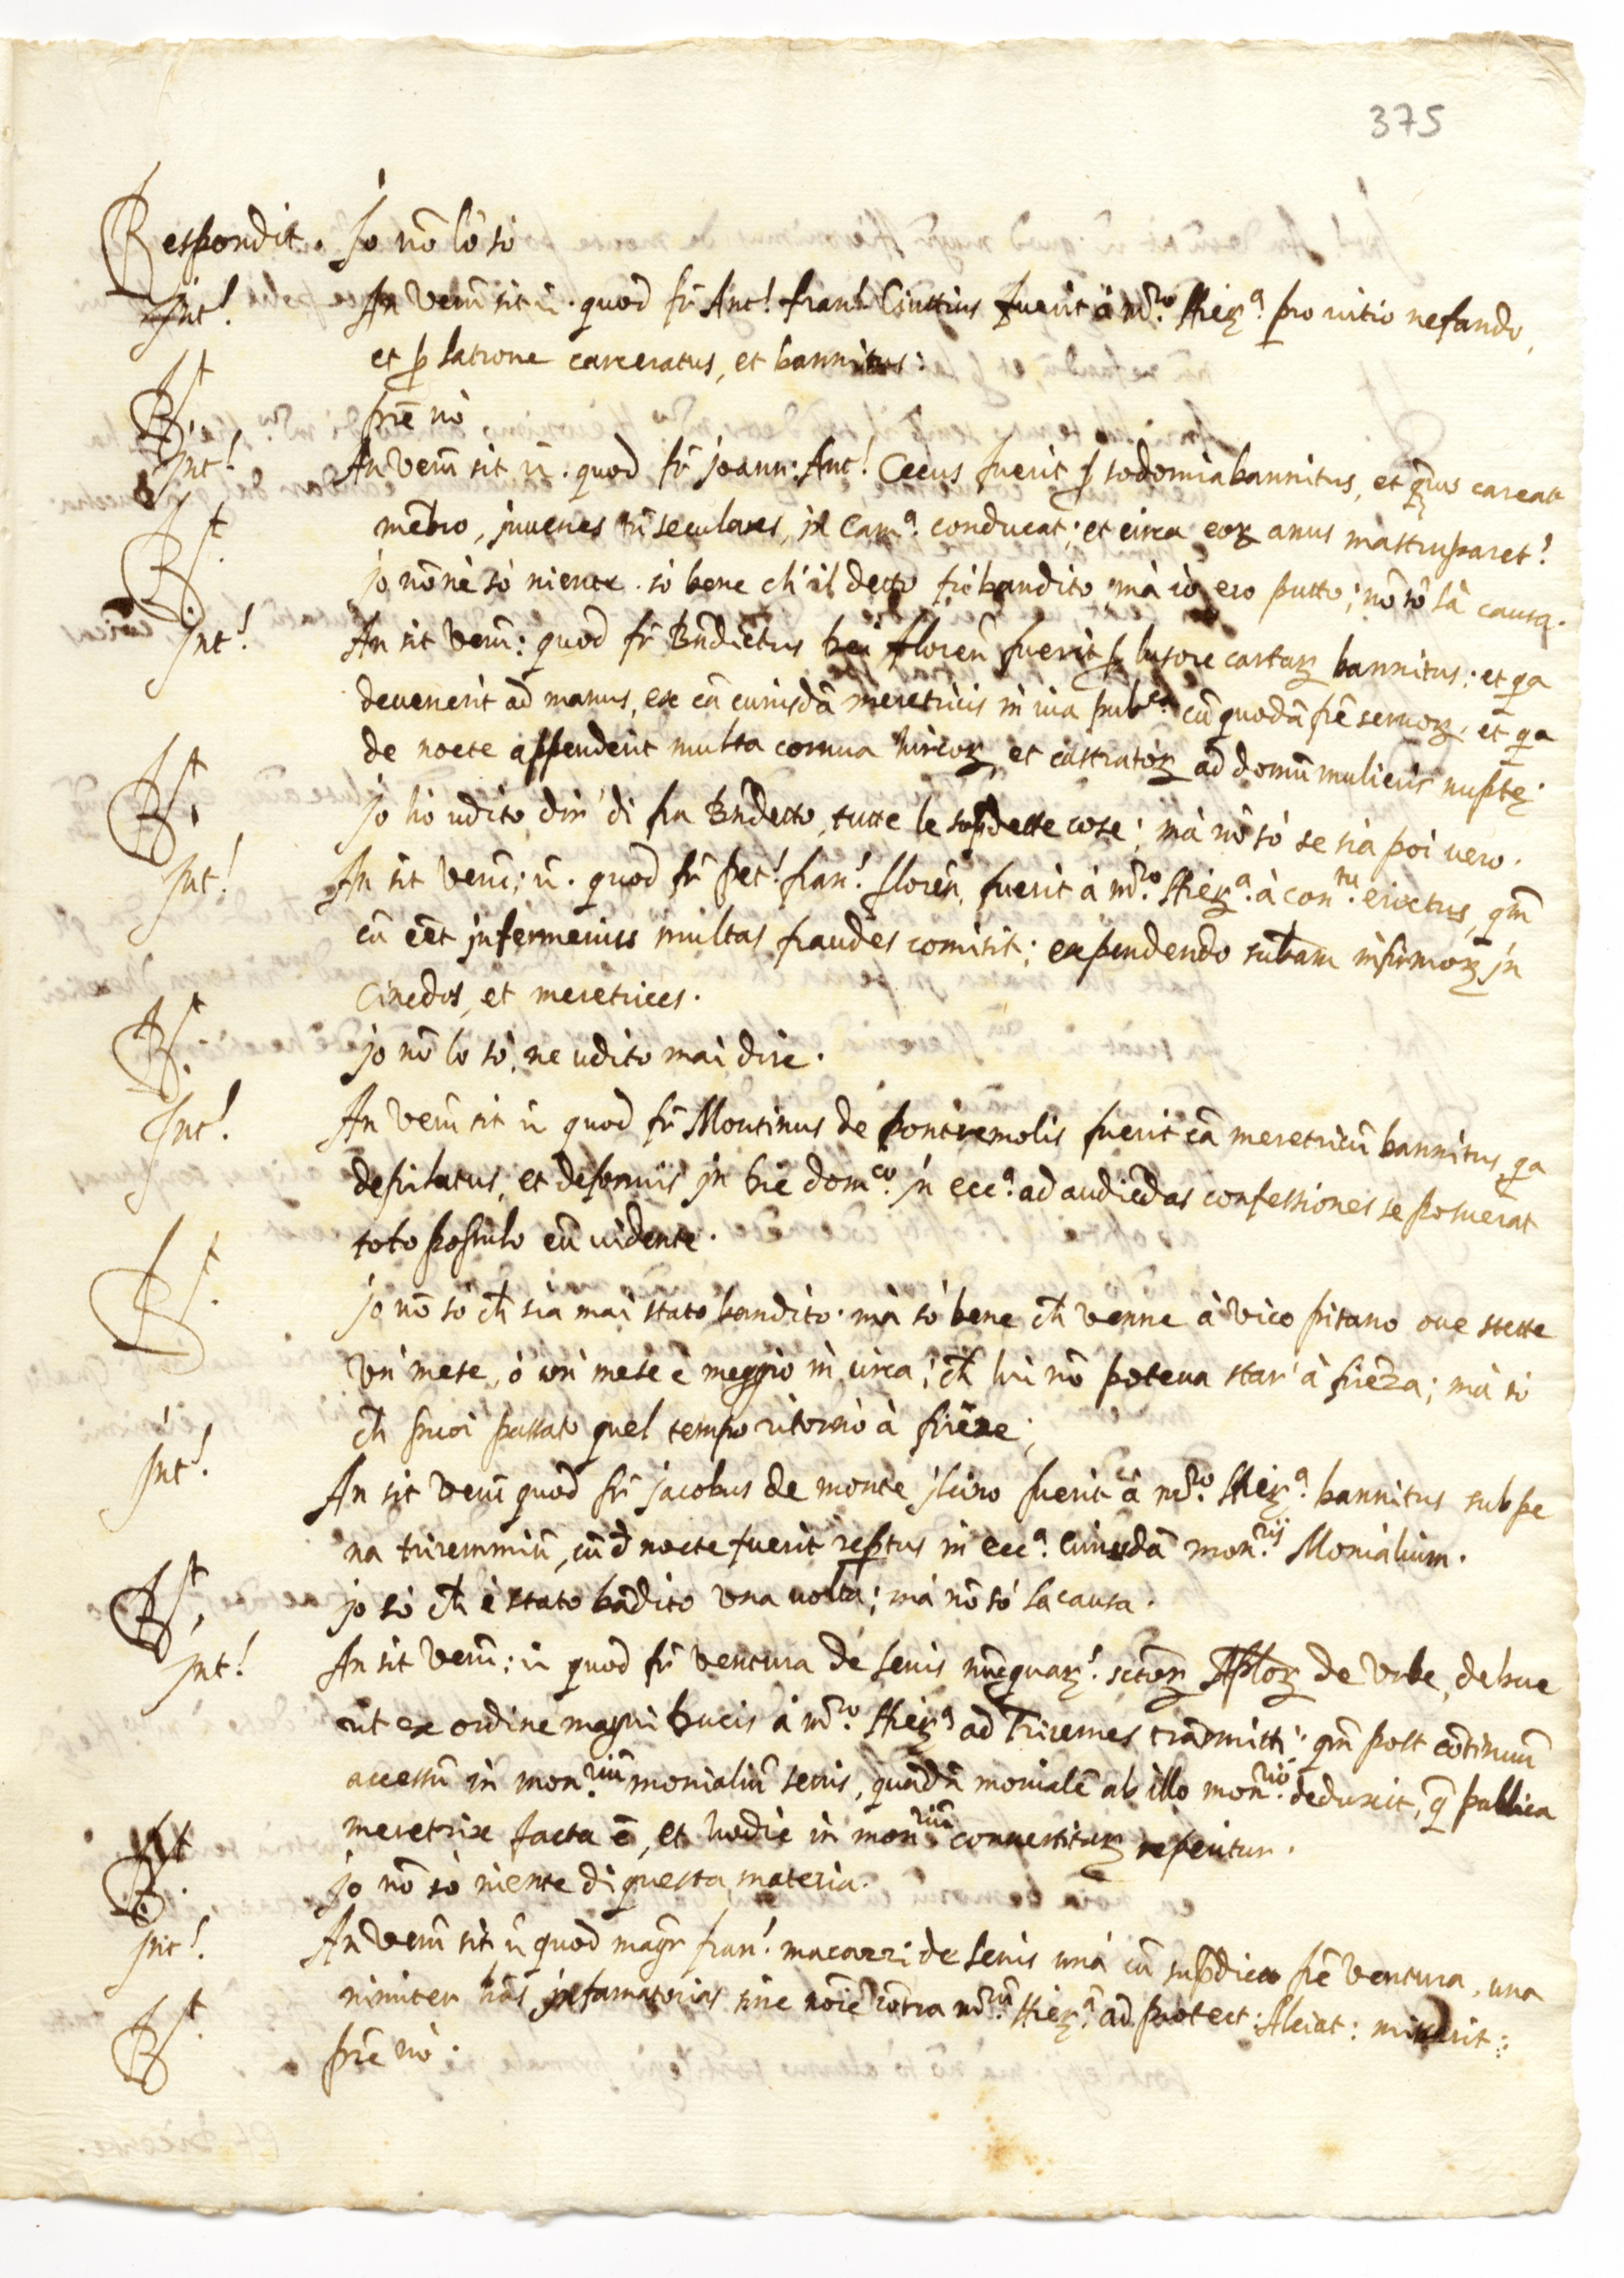 375
Respondit. Jo nõ lo sò
Int! An verũ sit ũ. quod fr̃ Ant! fran! Ciuttius fuerit à mr̃o. Hierꝫa. pro vitio nefando,
et ꝑ latrone carceratus, et bannitus:
Rt. prẽ nò
Int! An verũ sit ũ. quod fr̃ Joann: Ant! Cecus fuerit ꝑ sodomia bannitus, et careat
mẽbro, juuenes tñ seculares, in cam.a conducat; et circa eoꝝ anus mastruparet!
Rt. Jo nõ nè sò niente. sò bene ch'il detto fù bandito mà io ero putto; nõ sò la causa.
Int! An sit verũ: quod fr̃ Bñdictus Florẽn fuerit ꝑ lusore cartaꝝ bannitus; et qa
deuenerit ad manus, ex cã cuiusdã meretricis in uia pub.ca cũ quodã frẽ seruoꝝ, et qa
de nocte appenderit multa cornua hircoꝝ, et castratoꝝ ad domũ mulieris nuptę.
Rt. Jo hò udito dir' di fra Bñdetto, tutte le sopdette cose; mà nõ sò se sia poi uero.
Int! An sit verũ; ũ. quod fr̃ Pet! fran! florẽn, fuerit à mr̃o. Hierꝫa. à con.tu eiectus, qm̃
cũ eẽt jnfermeriss multas fraudes comisit; expendendo subam infirmoꝝ jn
Cinedos, et meretrices.
Rt. Jo nõ lo sò, ne udito mai dire.
Int! An verũ sit ũ quod fr̃ Montinus de Pontremolis fuerit cã meretricũ bannitus, qa
depilatus, et deformis jn die dom.co jn ecc.a ad audiẽdas confessiones se posuerat
toto populo eũ uidente.
Rt. Jo nõ sò ch̃ sia mai stato bandito. mà sò bene ch̃ venne à vico pisano oue stette
vn' mese, ò un' mese e meggio in circa; ch̃ lui nõ poteua star' à firẽza; mà sò
ch̃ puoi passato quel tempo ritornò à firẽze;
Int! An sit verũ quod fr̃ Jacobus de monte jlcino fuerit à mr̃o. Hierꝫa. bannitus sub pe
na triremmiũ, cũ d nocte fuerit reptus in ecc.a cuiusdã mon.rij Monialium.
Rt. Jo sò ch̃ è stato bãdito vna uolta; mà nõ sò la causa.
Int! An sit verũ; ũ quod fr̃ Ventura de Senis nũcquarꝫ! sctoꝝ Aplõꝝ de Vrbe, debue
rit ex ordine magni Ducis à mr̃o. Hierꝫa ad Triremes trãsmitti; qm̃ post cõtinuũ
accessũ in mon.riũ monialiũ senis, quãdã monialẽ ab illo mon.rio deduxit, q̃ publica
meretrix facta ẽ, et hodie in mon.riũ conuertitaꝝ reperitur.
Rt. Jo nõ sò niente di questa materia.
Int! An verũ sit ũ quod magr̃ fran! macarri de Senis unà cũ supdicto frẽ Ventura, una
nimiter lr̃as jnfamatorias sine noĩe cõtra mr̃m. Hierꝫa. ad protect: Alciat: miserit:
Rt. prẽ nò.